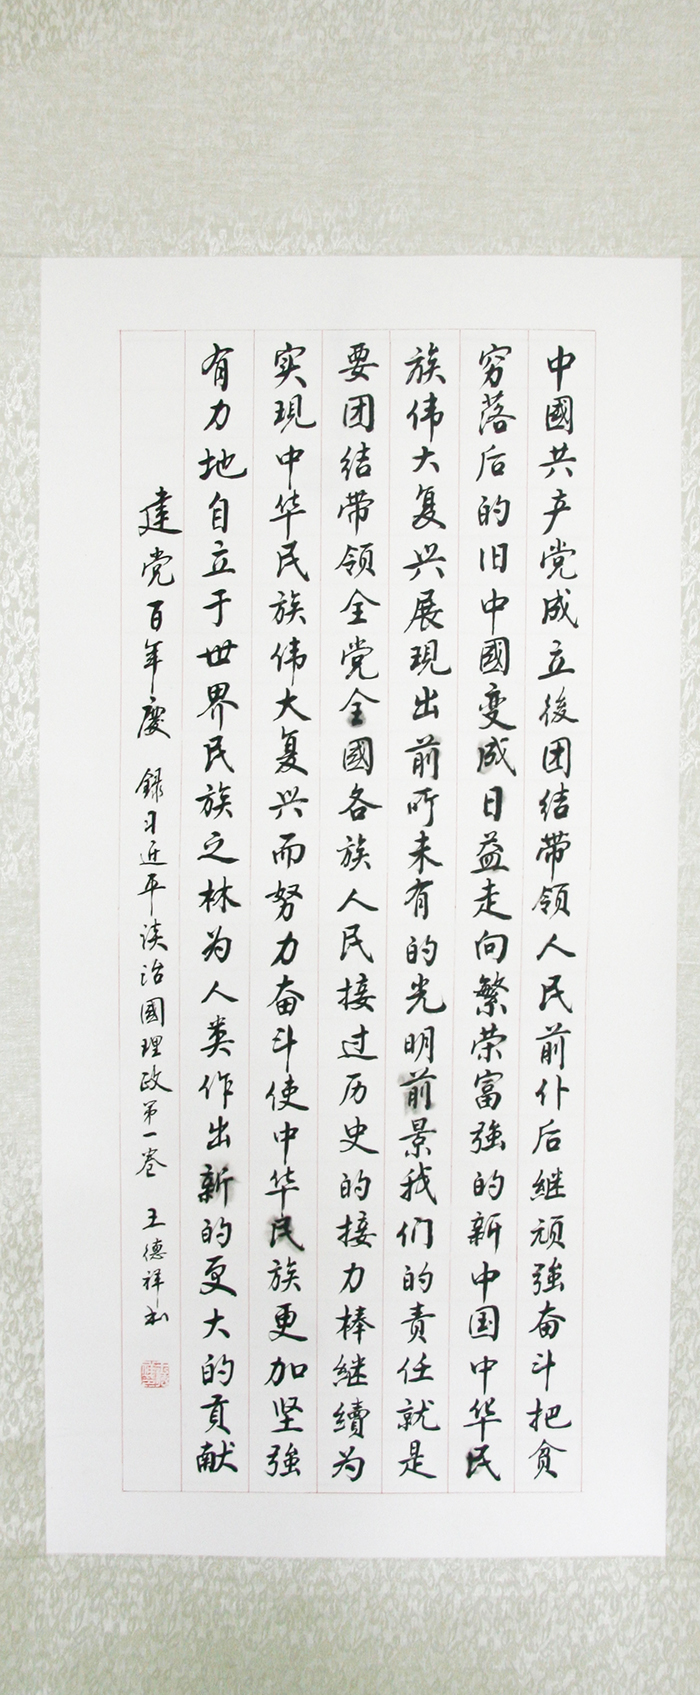 中國共产党成立後团结带领人民前仆后继顽強奋斗把贫
穷落后的旧中國变成日益走向繁荣富強的新中国中华民
族伟大复兴展现出前所未有的光明前景我们的责任就是
要团结带领全党全國各族人民接过历史的接力棒继續为
实現中华民族伟大复兴而努力奋斗使中华民族更加坚強
有力地自立于世界民族之林为人类作出新的更大的贡献
建党百年慶 録习近平谈治國理政第一卷 王德祥书